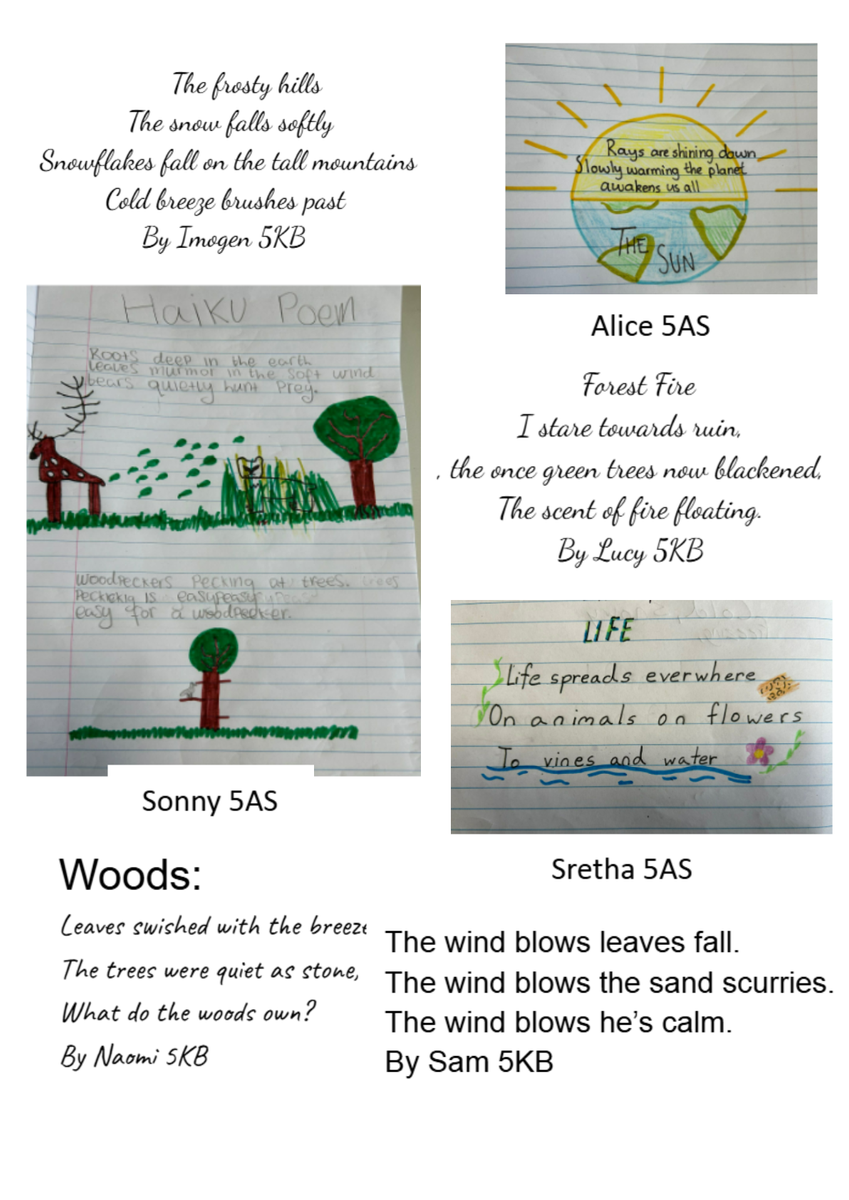 The frosty hills
The snow falls softly
Snowflakes fall on the tall mountains
Cold breeze brushes past
By Imogen 5KB
Rays are shining down
Slowly warming the planet
awakens us all
THE SUN
Alice 5AS
Haiku Poem
Roots deep in the earth
leaves murmor in the soft wind
bears quietly hunt Prey.
woodpeckers Pecking at trees.
easypeasy
easy for a woodpecker.
Sonny 5AS
Forest Fire
I stare towards ruin,
, the once green trees now blackened,
The scent of fire floating.
By Lucy 5KB
LIFE
Life spreads everwhere
On animals on flowers
To vines and water
Sretha 5AS
Woods:
Leaves swished with the breeze
The trees were quiet as stone,
What do the woods own?
By Naomi 5KB
The wind blows leaves fall.
The wind blows the sand scurries.
The wind blows he's calm.
By Sam 5KB